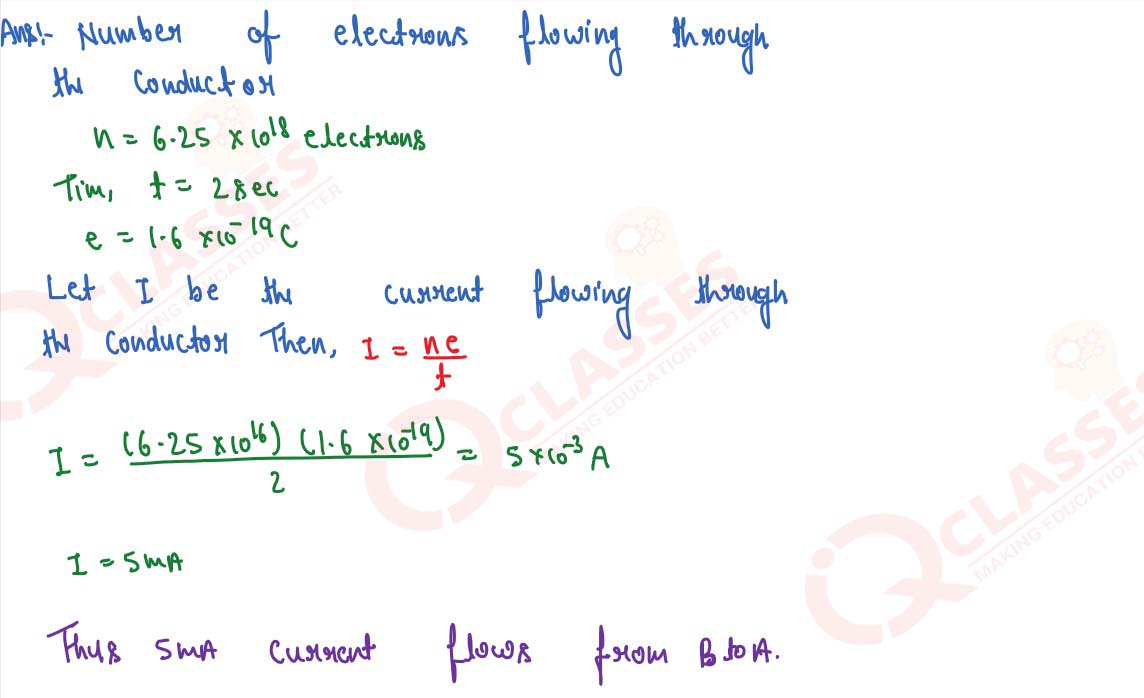 Ans:- Number of electrons flowing through
the Conductor
n = 6.25 × 10¹⁸ electrons
Tim, t = 2sec
e = 1.6 × 10⁻¹⁹ C
Let I be the current flowing through
the Conductor Then, I = ne/t
I = (6.25 × 10¹⁶) (1.6 × 10⁻¹⁹)/2 = 5 × 10⁻³ A
I = 5mA
Thus 5mA current flows from B to A.
iQ CLASSES
MAKING EDUCATION BETTER
iQ CLASSES
MAKING EDUCATION BETTER
iQ CLASSES
MAKING EDUCATION B